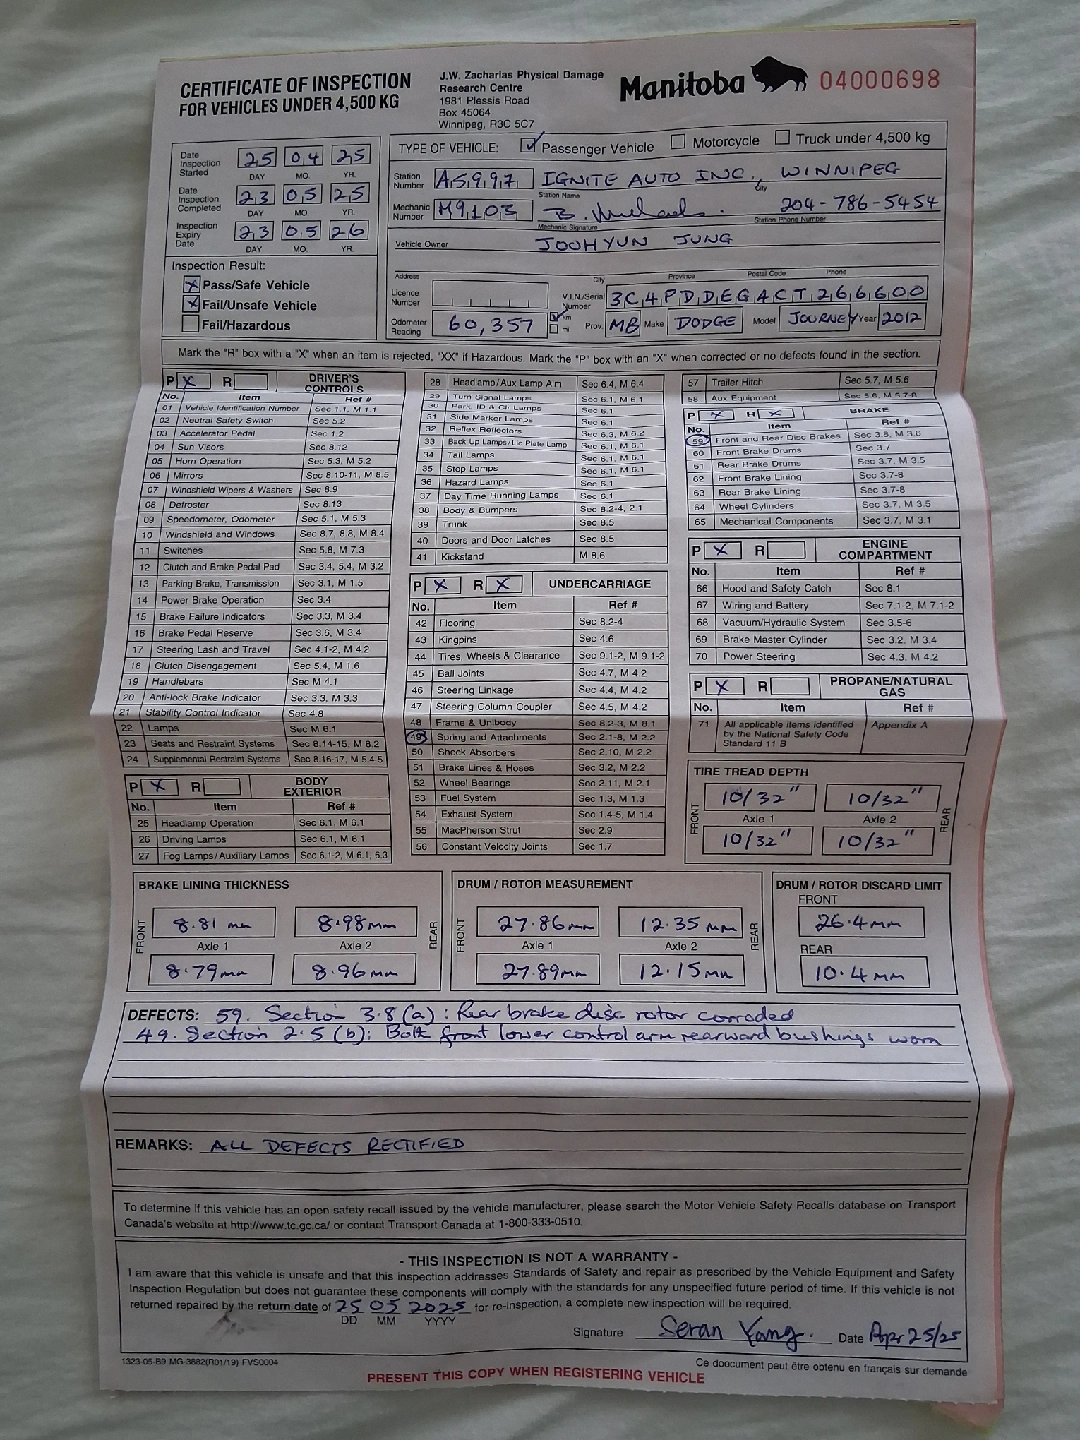 CERTIFICATE OF INSPECTION
FOR VEHICLES UNDER 4,500 KG
J.W. Zacharias Physical Damage
Research Centre
1981 Plessis Road
Box 45064
Winnipeg, R3C 5C7
Manitoba
04000698
Date Inspection Started 25 04 25
DAY MO. YR.
Date Inspection Completed 23 05 25
DAY MO. YR.
Inspection Expiry Date 23 05 26
DAY MO. YR.
Inspection Result:
X Pass/Safe Vehicle
X Fail/Unsafe Vehicle
Fail/Hazardous
TYPE OF VEHICLE: ✓ Passenger Vehicle Motorcycle Truck under 4,500 kg
Station Number A5997 IGNITE AUTO INC., WINNIPEG
Station Name City
Mechanic Number M9103 B. Michaels. 204-786-5454
Mechanic Signature Station Phone Number
Vehicle Owner JOOHYUN JUNG
Address City Province Postal Code Phone
Licence Number V.I.N./Serial Number 3C4PDDEGACT266600
Odometer Reading 60,357 ✓ km mi Prov. MB Make DODGE Model JOURNEY Year 2012
Mark the "R" box with a "X" when an item is rejected, "XX" if Hazardous. Mark the "P" box with an "X" when corrected or no defects found in the section.
P X R DRIVER'S CONTROLS
No. Item Ref #
01 Vehicle Identification Number Sec 1.1, M 1.1
02 Neutral Safety Switch Sec 5.2
03 Accelerator Pedal Sec 1.2
04 Sun Visors Sec 8.12
05 Horn Operation Sec 5.3, M 5.2
06 Mirrors Sec 8.10-11, M 8.5
07 Windshield Wipers & Washers Sec 8.9
08 Defroster Sec 8.13
09 Speedometer, Odometer Sec 5.1, M 5.3
10 Windshield and Windows Sec 8.7, 8.8, M 8.4
11 Switches Sec 5.8, M 7.3
12 Clutch and Brake Pedal Pad Sec 3.4, 5.4, M 3.2
13 Parking Brake, Transmission Sec 3.1, M 1.5
14 Power Brake Operation Sec 3.4
15 Brake Failure Indicators Sec 3.3, M 3.4
16 Brake Pedal Reserve Sec 3.5, M 3.4
17 Steering Lash and Travel Sec 4.1-2, M 4.2
18 Clutch Disengagement Sec 5.4, M 1.6
19 Handlebars Sec M 4.1
20 Anti-lock Brake Indicator Sec 3.3, M 3.3
21 Stability Control Indicator Sec 4.8
22 Lamps Sec M 6.1
23 Seats and Restraint Systems Sec 8.14-15, M 8.2
24 Supplemental Restraint Systems Sec 8.16-17, M 5.4-5
P X R BODY EXTERIOR
No. Item Ref #
25 Headlamp Operation Sec 6.1, M 6.1
26 Driving Lamps Sec 6.1, M 6.1
27 Fog Lamps/Auxiliary Lamps Sec 6.1-2, M 6.1, 6.3
28 Headlamp/Aux Lamp Aim Sec 6.4, M 6.4
29 Turn Signal Lamps Sec 6.1, M 6.1
30 Park, ID & Clr Lamps Sec 6.1, M 6.1
31 Side Marker Lamps Sec 6.1
32 Reflex Reflectors Sec 6.3, M 6.2
33 Back Up Lamps/Lic Plate Lamp Sec 6.1, M 6.1
34 Tail Lamps Sec 6.1, M 6.1
35 Stop Lamps Sec 6.1, M 6.1
36 Hazard Lamps Sec 6.1
37 Day Time Running Lamps Sec 6.1
38 Body & Bumpers Sec 8.2-4, 2.1
39 Trunk Sec 8.5
40 Doors and Door Latches Sec 8.5
41 Kickstand M 8.6
P X R X UNDERCARRIAGE
No. Item Ref #
42 Flooring Sec 8.2-4
43 Kingpins Sec 4.6
44 Tires, Wheels & Clearance Sec 9.1-2, M 9.1-2
45 Ball Joints Sec 4.7, M 4.2
46 Steering Linkage Sec 4.4, M 4.2
47 Steering Column Coupler Sec 4.5, M 4.2
48 Frame & Unibody Sec 8.2-3, M 8.1
49 Spring and Attachments Sec 2.1-8, M 2.2
50 Shock Absorbers Sec 2.10, M 2.2
51 Brake Lines & Hoses Sec 3.2, M 2.2
52 Wheel Bearings Sec 2.11, M 2.1
53 Fuel System Sec 1.3, M 1.3
54 Exhaust System Sec 1.4-5, M 1.4
55 MacPherson Strut Sec 2.9
56 Constant Velocity Joints Sec 1.7
57 Trailer Hitch Sec 5.7, M 5.6
58 Aux Equipment
P X R X BRAKE
No. Item Ref #
59 Front and Rear Disc Brakes Sec 3.8, M 3.6
60 Front Brake Drums Sec 3.7
61 Rear Brake Drums Sec 3.7, M 3.5
62 Front Brake Lining Sec 3.7-8
63 Rear Brake Lining Sec 3.7-8
64 Wheel Cylinders Sec 3.7, M 3.5
65 Mechanical Components Sec 3.7, M 3.1
P X R ENGINE COMPARTMENT
No. Item Ref #
66 Hood and Safety Catch Sec 8.1
67 Wiring and Battery Sec 7.1-2, M 7.1-2
68 Vacuum/Hydraulic System Sec 3.5-6
69 Brake Master Cylinder Sec 3.2, M 3.4
70 Power Steering Sec 4.3, M 4.2
P X R PROPANE/NATURAL GAS
No. Item Ref #
71 All applicable items identified by the National Safety Code Standard 11 B Appendix A
TIRE TREAD DEPTH
FRONT 10/32" 10/32" REAR
Axle 1 Axle 2
10/32" 10/32"
BRAKE LINING THICKNESS
FRONT 8.81 mm 8.98mm REAR
Axle 1 Axle 2
8.79mm 8.96mm
DRUM / ROTOR MEASUREMENT
FRONT 27.86mm 12.35 mm REAR
Axle 1 Axle 2
27.89mm 12.15mm
DRUM / ROTOR DISCARD LIMIT
FRONT
26.4mm
REAR
10.4mm
DEFECTS: 59. Section 3.8(a): Rear brake disc rotor corroded
49. Section 2.5 (b): Both front lower control arm rearward bushings worn
REMARKS: ALL DEFECTS RECTIFIED
To determine if this vehicle has an open safety recall issued by the vehicle manufacturer, please search the Motor Vehicle Safety Recalls database on Transport
Canada's website at http://www.tc.gc.ca/ or contact Transport Canada at 1-800-333-0510.
- THIS INSPECTION IS NOT A WARRANTY -
I am aware that this vehicle is unsafe and that this inspection addresses Standards of Safety and repair as prescribed by the Vehicle Equipment and Safety
Inspection Regulation but does not guarantee these components will comply with the standards for any unspecified future period of time. If this vehicle is not
returned repaired by the return date of 25 05 2025 for re-inspection, a complete new inspection will be required.
DD MM YYYY
Signature Seran Yang. Date Apr 25/25
1323-05-B9 MG-3882(R01/19) FVS0004
Ce doocument peut être obtenu en français sur demande
PRESENT THIS COPY WHEN REGISTERING VEHICLE